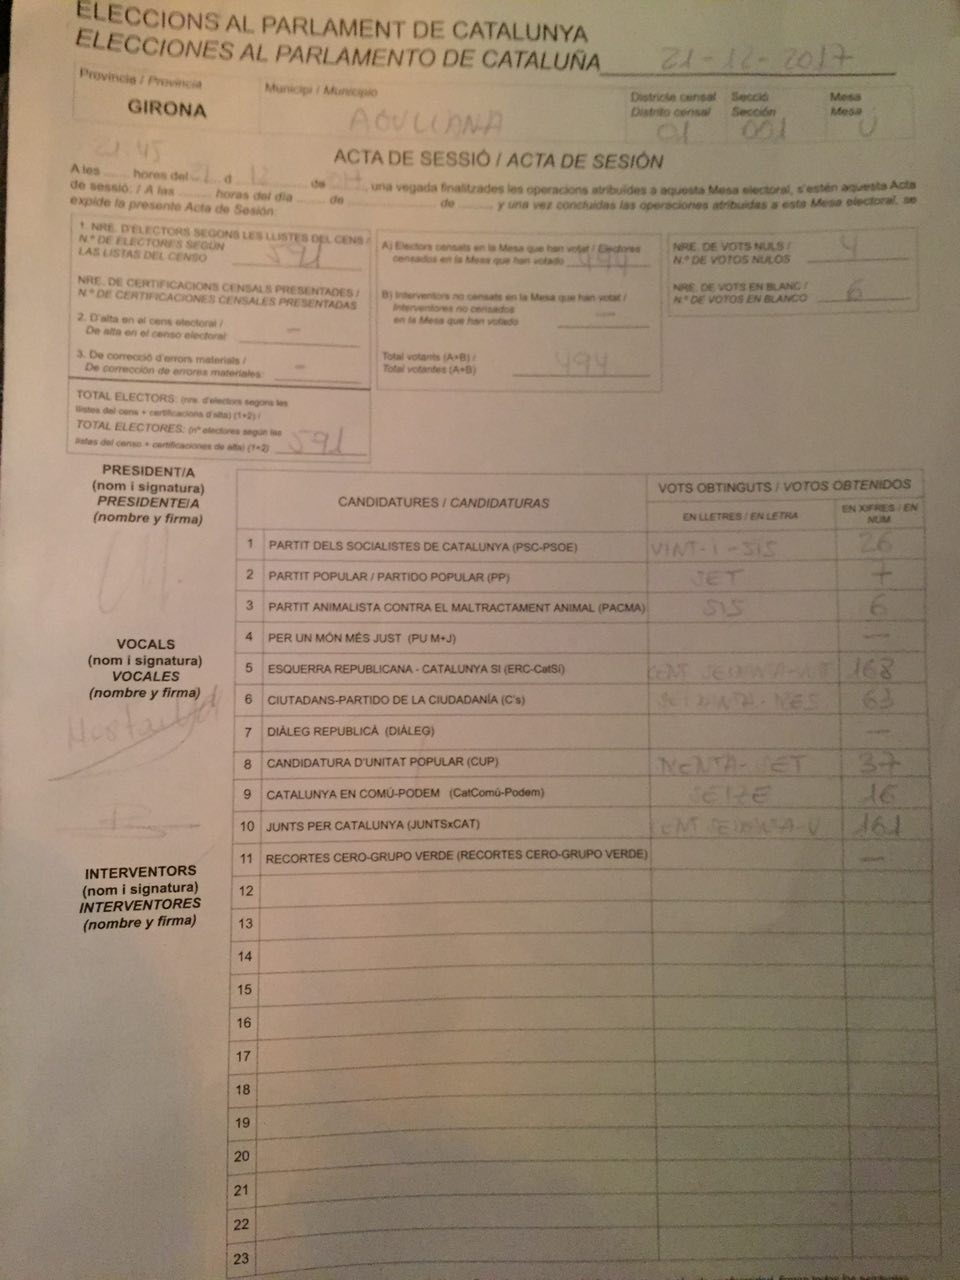 ELECCIONS AL PARLAMENT DE CATALUNYA
ELECCIONES AL PARLAMENTO DE CATALUÑA 21-12-2017
Província / Provincia
GIRONA
Municipi / Municipio
AGULLANA
Districte censal Secció Mesa
Distrito censal Sección Mesa
01 001 U
ACTA DE SESSIÓ / ACTA DE SESIÓN
21:45
A les ...... hores del 21 d 12 de ......, una vegada finalitzades les operacions atribuïdes a aquesta Mesa electoral, s'estén aquesta Acta
de sessió. / A las ...... horas del día ...... de ...... de ...... y una vez concluidas las operaciones atribuidas a esta Mesa electoral, se
expide la presente Acta de Sesión.
1 NRE. D'ELECTORS SEGONS LES LLISTES DEL CENS /
N.º DE ELECTORES SEGÚN
LAS LISTAS DEL CENSO 591
NRE. DE CERTIFICACIONS CENSALS PRESENTADES /
N.º DE CERTIFICACIONES CENSALES PRESENTADAS
2. D'alta en el cens electoral /
De alta en el censo electoral: —
3. De correcció d'errors materials /
De corrección de errores materiales: —
TOTAL ELECTORS: (nre. d'electors segons les
llistes del cens + certificacions d'alta) (1+2) /
TOTAL ELECTORES: (nº electores según las
listas del censo + certificaciones de alta) (1+2) 591
A) Electors censats en la Mesa que han votat / Electores
censados en la Mesa que han votado 494
B) Interventors no censats en la Mesa que han votat /
Interventores no censados
en la Mesa que han votado —
Total votants (A+B) /
Total votantes (A+B) 494
NRE. DE VOTS NULS /
N.º DE VOTOS NULOS 4
NRE. DE VOTS EN BLANC /
Nº DE VOTOS EN BLANCO 6
PRESIDENT/A
(nom i signatura)
PRESIDENTE/A
(nombre y firma)
VOCALS
(nom i signatura)
VOCALES
(nombre y firma)
INTERVENTORS
(nom i signatura)
INTERVENTORES
(nombre y firma)
CANDIDATURES / CANDIDATURAS
VOTS OBTINGUTS / VOTOS OBTENIDOS
EN LLETRES / EN LETRA
EN XIFRES / EN
NUM
1 PARTIT DELS SOCIALISTES DE CATALUNYA (PSC-PSOE) VINT-I-SIS 26
2 PARTIT POPULAR / PARTIDO POPULAR (PP) SET 7
3 PARTIT ANIMALISTA CONTRA EL MALTRACTAMENT ANIMAL (PACMA) SIS 6
4 PER UN MÓN MÉS JUST (PU M+J) —
5 ESQUERRA REPUBLICANA - CATALUNYA SI (ERC-CatSí) CENT SEIXANTA-VUIT 168
6 CIUTADANS-PARTIDO DE LA CIUDADANÍA (C's) 63
7 DIÀLEG REPUBLICÀ (DIÀLEG) —
8 CANDIDATURA D'UNITAT POPULAR (CUP) 37
9 CATALUNYA EN COMÚ-PODEM (CatComú-Podem) SETZE 16
10 JUNTS PER CATALUNYA (JUNTSxCAT) CENT SEIXANTA-U 161
11 RECORTES CERO-GRUPO VERDE (RECORTES CERO-GRUPO VERDE) —
12
13
14
15
16
17
18
19
20
21
22
23